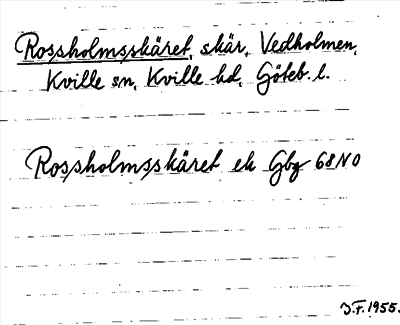 Rossholmsskäret, skär, Vedholmen,
Kville sn, Kville hd, Göteb. l.
Rossholmsskäret ek Gbg 68 NO
J.F. 1955.